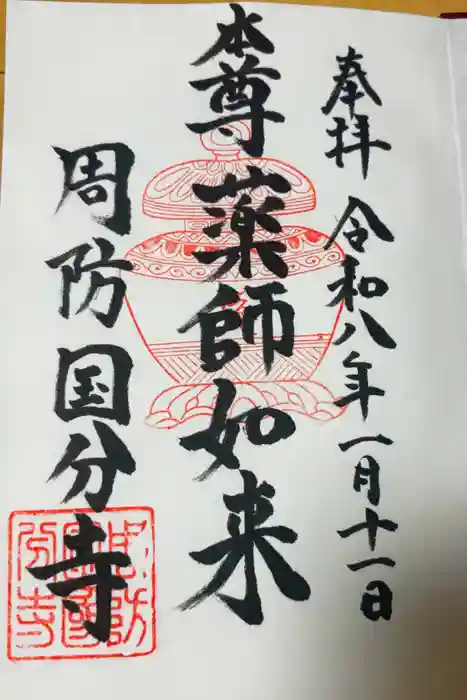 奉拝 令和八年一月十一日
本尊薬師如来
周防国分寺
周防
国国
分寺